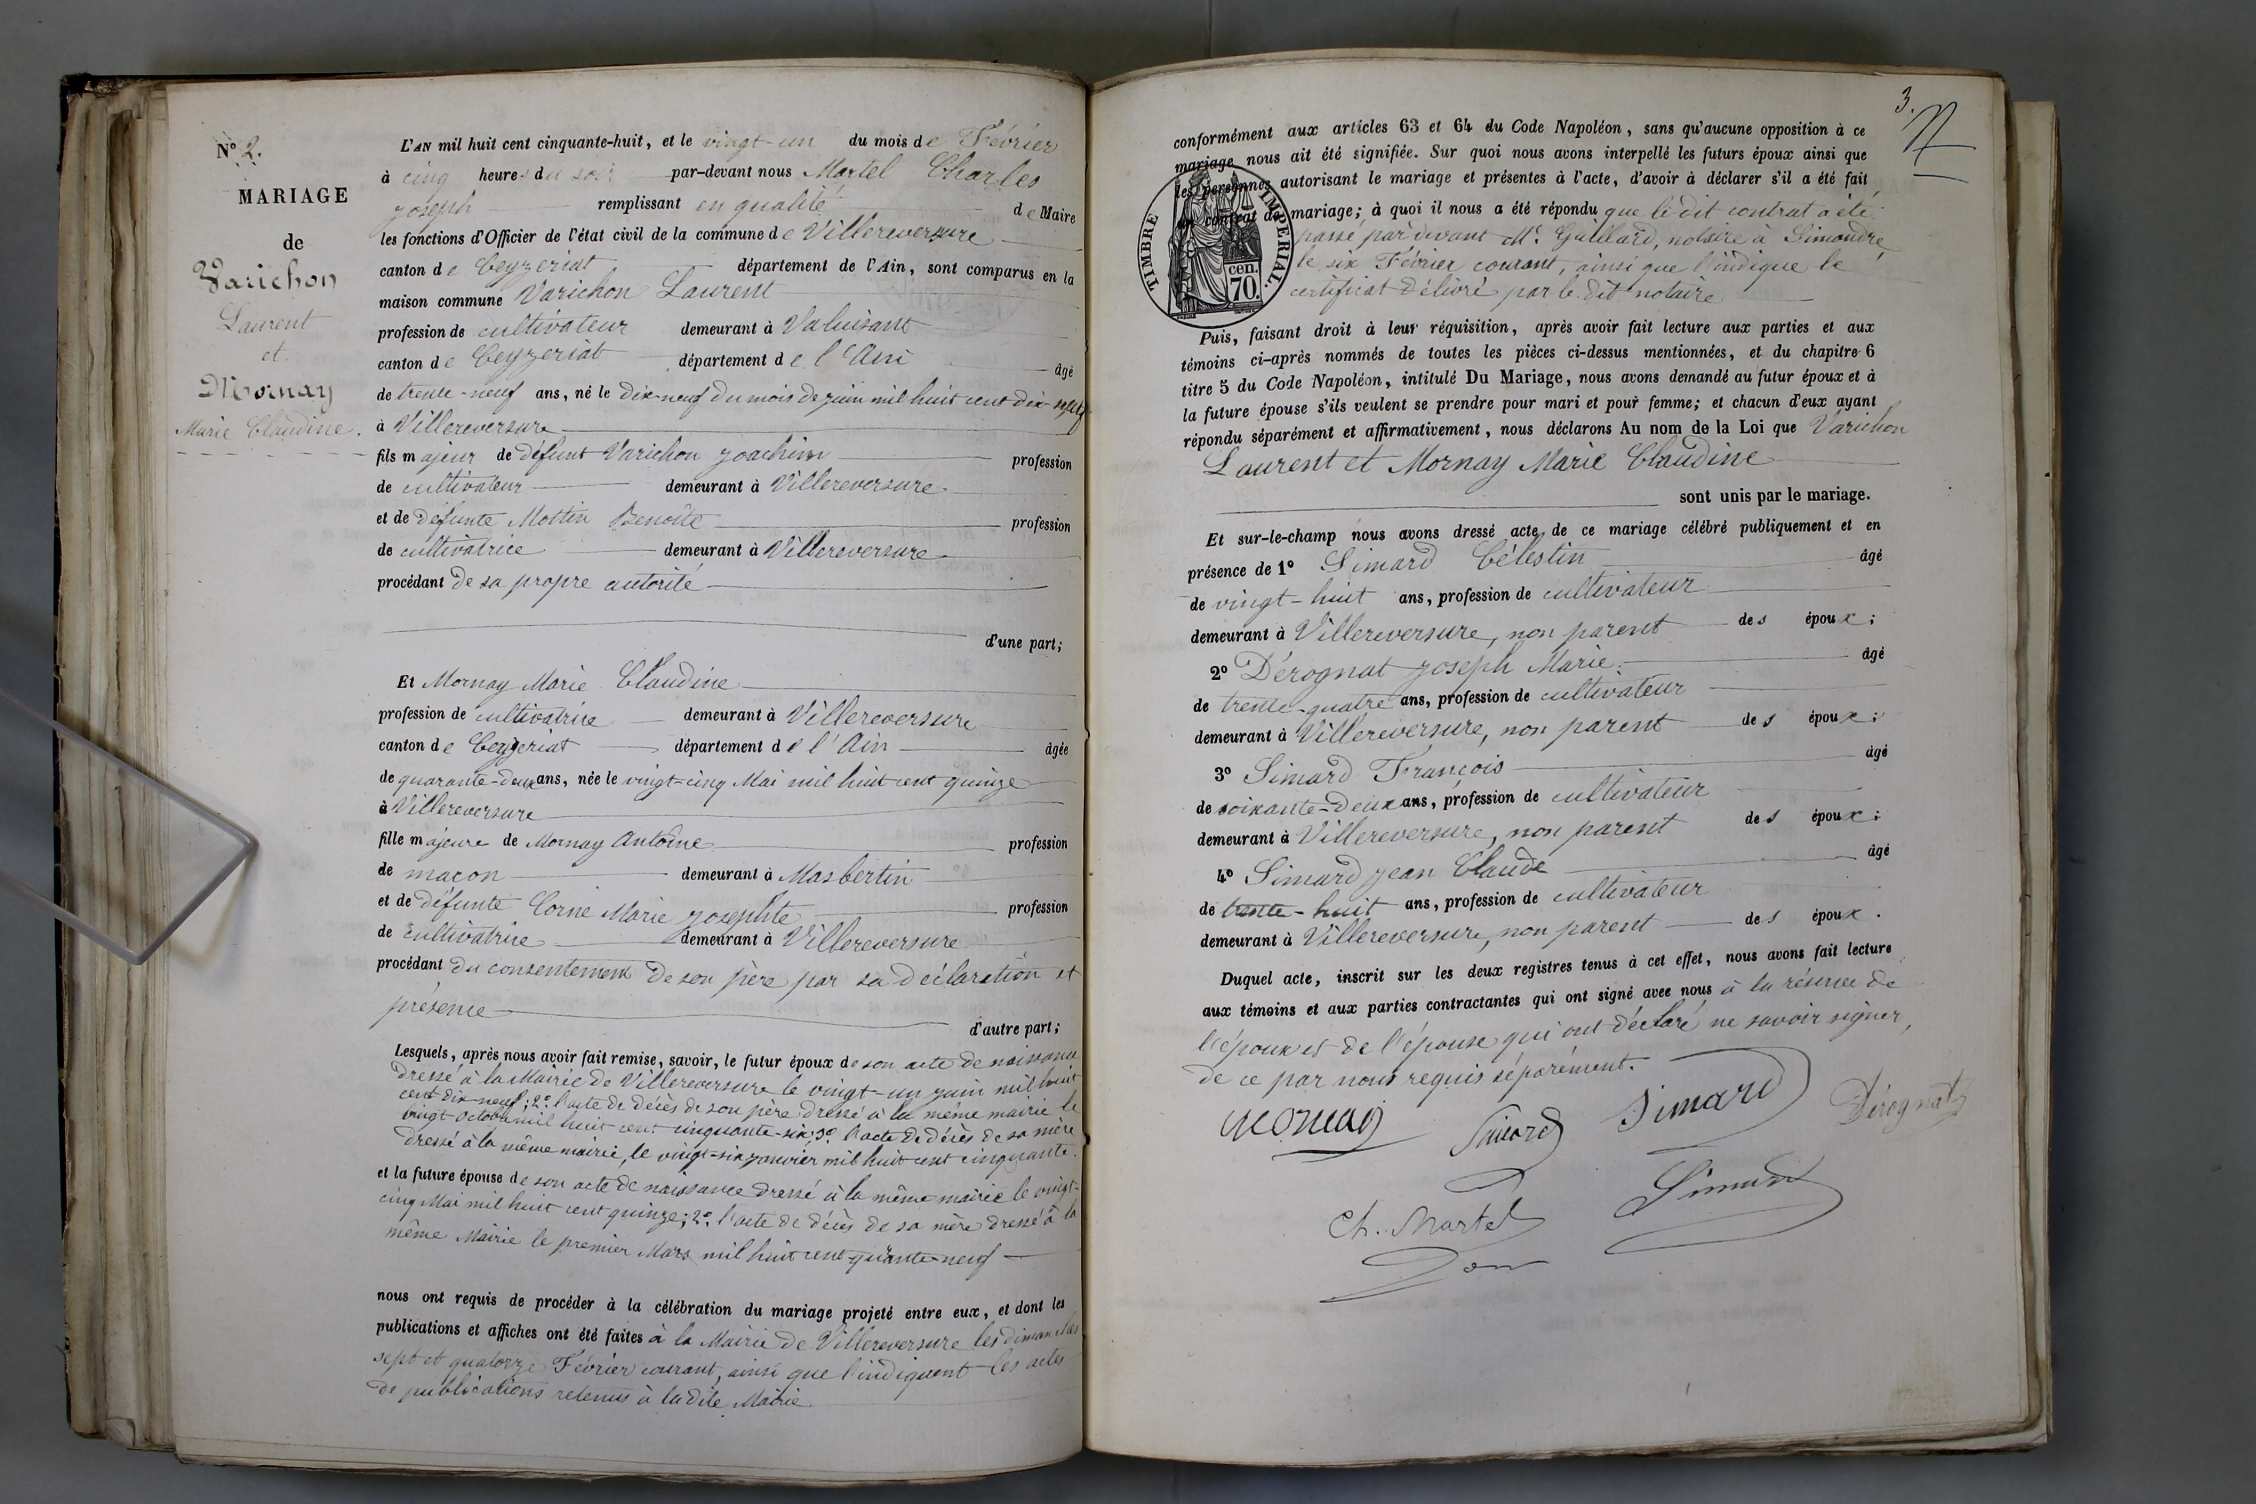 N° 2.
MARIAGE
de
Varichon
Laurent
et
Mornay
Marie Claudine.
L'AN mil huit cent cinquante-huit, et le vingt-un du mois de Février
à cinq heures du soir par-devant nous Martel Charles
joseph remplissant en qualité de Maire
les fonctions d'Officier de l'état civil de la commune de Villereversure
canton de Ceyzeriat département de l'Ain, sont comparus en la
maison commune Varichon Laurent
profession de cultivateur demeurant à Valuisant
canton de Ceyzeriat département de l'Ain âgé
de trente-neuf ans, né le dix-neuf du mois de juin mil huit cent dix-neuf
à Villereversure
fils majeur de défunt Varichon joachim profession
de cultivateur demeurant à Villereversure
et de défunte Mottin Benoîte profession
de cultivatrice demeurant à Villereversure
procédant de sa propre autorité
d'une part;
Et Mornay Marie Claudine
profession de cultivatrice demeurant à Villereversure
canton de Ceyzeriat département de l'Ain âgée
de quarante-deux ans, née le vingt-cinq Mai mil huit cent quinze
à Villereversure
fille majeure de Mornay Antoine profession
de maçon demeurant à Masbertin
et de défunte Corne Marie josephte profession
de cultivatrice demeurant à Villereversure
procédant du consentement de son père par sa déclaration et
présence
d'autre part;
Lesquels, après nous avoir fait remise, savoir, le futur époux de son acte de naissance
dressé à la Mairie de Villereversure le vingt-un juin mil huit
cent dix-neuf; 2° l'acte de décès de son père dressé à la même mairie le
vingt octobre mil huit cent cinquante-six; 3° l'acte de décès de sa mère
dressé à la même mairie, le vingt-six janvier mil huit cent cinquante.
et la future épouse de son acte de naissance dressé à la même mairie le vingt-
cinq Mai mil huit cent quinze; 2° l'acte de décès de sa mère dressé à la
même Mairie le premier Mars mil huit cent quarante-neuf
nous ont requis de procéder à la célébration du mariage projeté entre eux, et dont les
publications et affiches ont été faites à la Mairie de Villereversure les dimanches
sept et quatorze Février courant, ainsi que l'indiquent les actes
de publications retenus à la dite Mairie
3.
conformément aux articles 63 et 64 du Code Napoléon, sans qu'aucune opposition à ce
mariage nous ait été signifiée. Sur quoi nous avons interpellé les futurs époux ainsi que
les personnes autorisant le mariage et présentes à l'acte, d'avoir à déclarer s'il a été fait
un contrat de mariage; à quoi il nous a été répondu que le dit contrat a été
passé par devant Me. Guillard, notaire à Simandre,
le six Février courant, ainsi que l'indique le
certificat délivré par le dit notaire
TIMBRE IMPERIAL.
cen.
70.
Puis, faisant droit à leur réquisition, après avoir fait lecture aux parties et aux
témoins ci-après nommés de toutes les pièces ci-dessus mentionnées, et du chapitre 6
titre 5 du Code Napoléon, intitulé Du Mariage, nous avons demandé au futur époux et à
la future épouse s'ils veulent se prendre pour mari et pour femme; et chacun d'eux ayant
répondu séparément et affirmativement, nous déclarons Au nom de la Loi que Varichon
Laurent et Mornay Marie Claudine
sont unis par le mariage.
Et sur-le-champ nous avons dressé acte de ce mariage célébré publiquement et en
présence de 1° Simard Célestin âgé
de vingt-huit ans, profession de cultivateur
demeurant à Villereversure, non parent des époux;
2° Dérognat joseph Marie âgé
de trente-quatre ans, profession de cultivateur
demeurant à Villereversure, non parent des époux;
3° Simard François âgé
de soixante-deux ans, profession de cultivateur
demeurant à Villereversure, non parent des époux;
4° Simard jean Claude âgé
de trente-huit ans, profession de cultivateur
demeurant à Villereversure, non parent des époux.
Duquel acte, inscrit sur les deux registres tenus à cet effet, nous avons fait lecture
aux témoins et aux parties contractantes qui ont signé avec nous à la réserve de
l'époux et de l'épouse qui ont déclaré ne savoir signer,
de ce par nous requis séparément.
Mornay Simard Simard Dérognat
Ch. Martel Simard